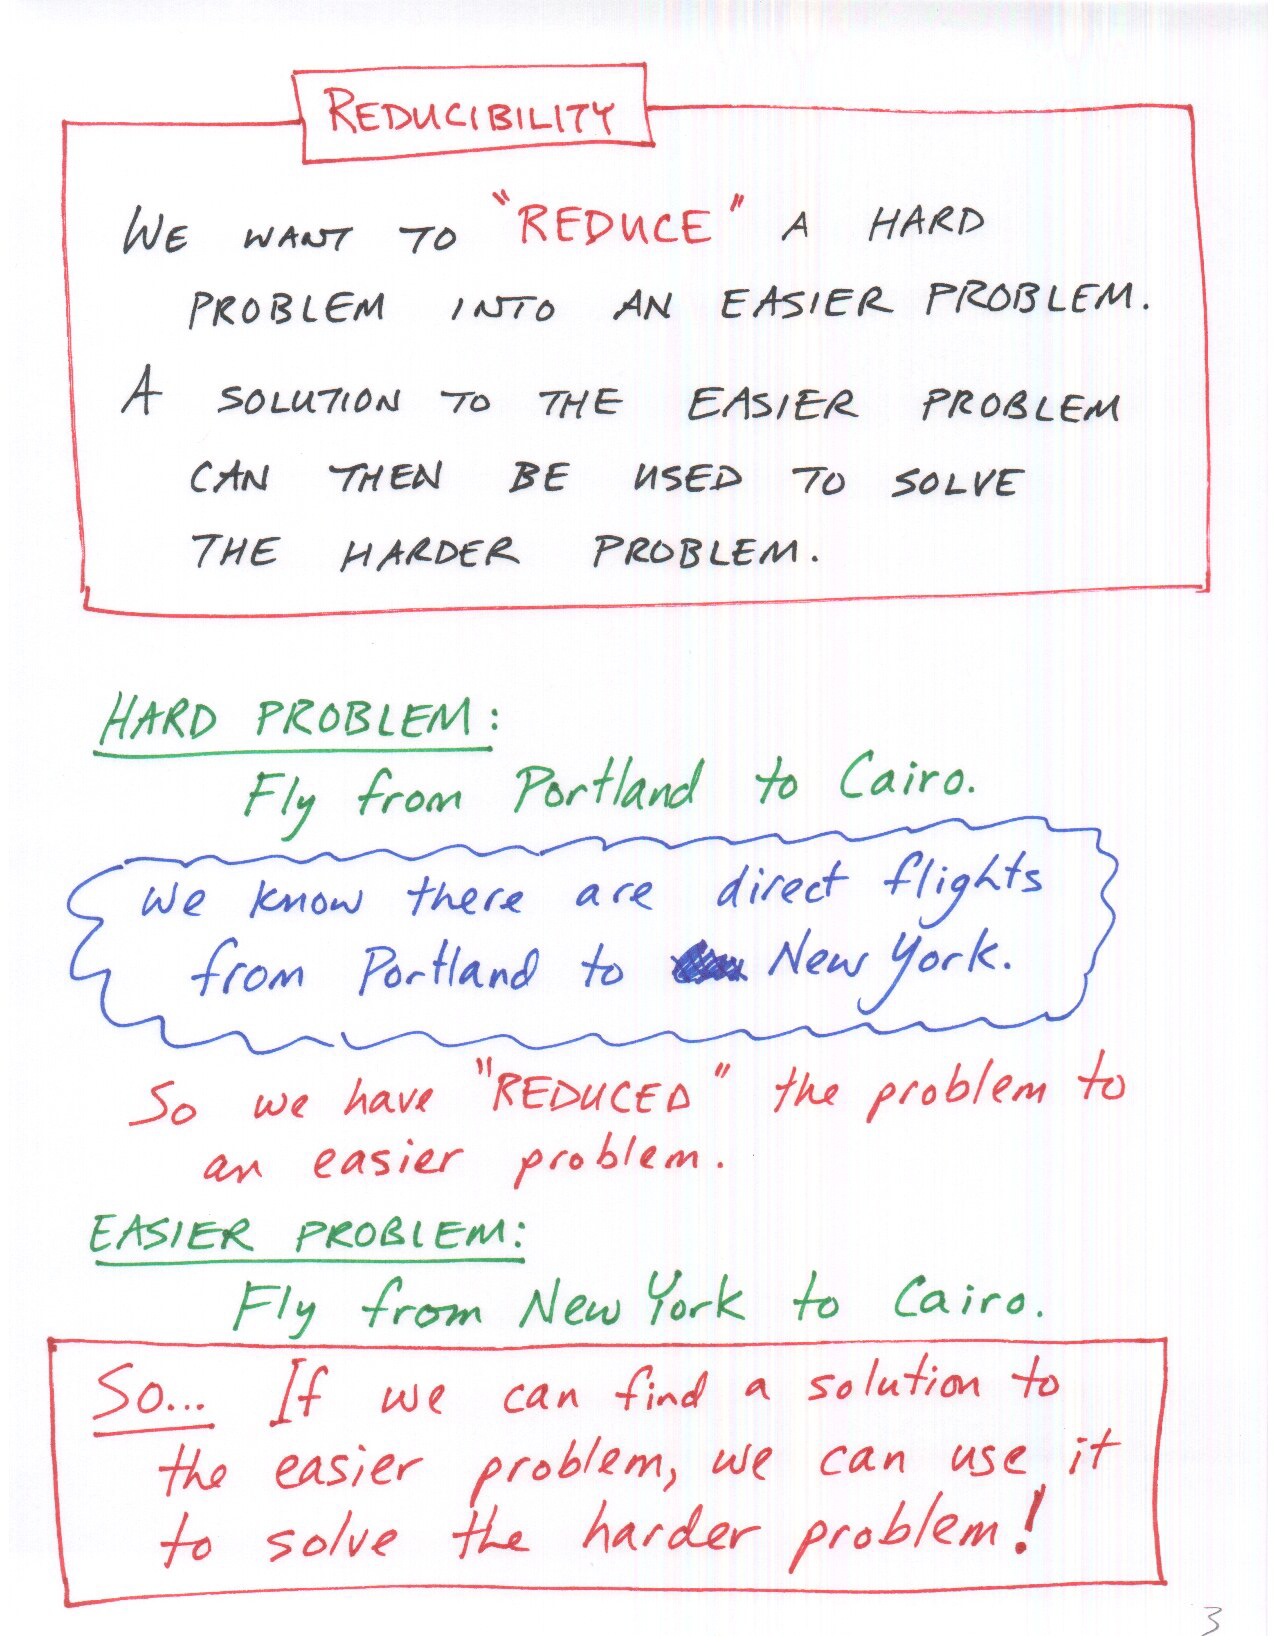 REDUCIBILITY
WE WANT TO "REDUCE" A HARD
PROBLEM INTO AN EASIER PROBLEM.
A SOLUTION TO THE EASIER PROBLEM
CAN THEN BE USED TO SOLVE
THE HARDER PROBLEM.
HARD PROBLEM:
Fly from Portland to Cairo.
We know there are direct flights
from Portland to New York.
So we have "REDUCED" the problem to
an easier problem.
EASIER PROBLEM:
Fly from New York to Cairo.
So... If we can find a solution to
the easier problem, we can use it
to solve the harder problem!
3